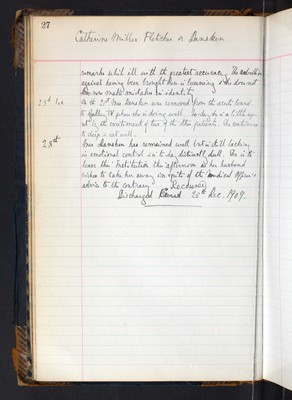 27
Catherine Miller Fletcher or Danskin
remarks whilst ill with the greatest accuracy. The
against having been brought here is lessening & she does not
now make mistakes in identity.
23d Dec. On the 22d Mrs Danskin was removed from the acute ward
to Gallery IV where she is doing well. To-day she is a little upset
by the excitement of two of the other patients. She continues
to sleep & eat well.
28th Mrs Danskin has remained well but is still lacking
in emotional control & is to-day distinctly dull. She is to
leave this Institution this afternoon as her husband
wishes to take her away in spite of the Medical Officer's
advice to the contrary.
Discharged Relieved 28th Dec. 1909.